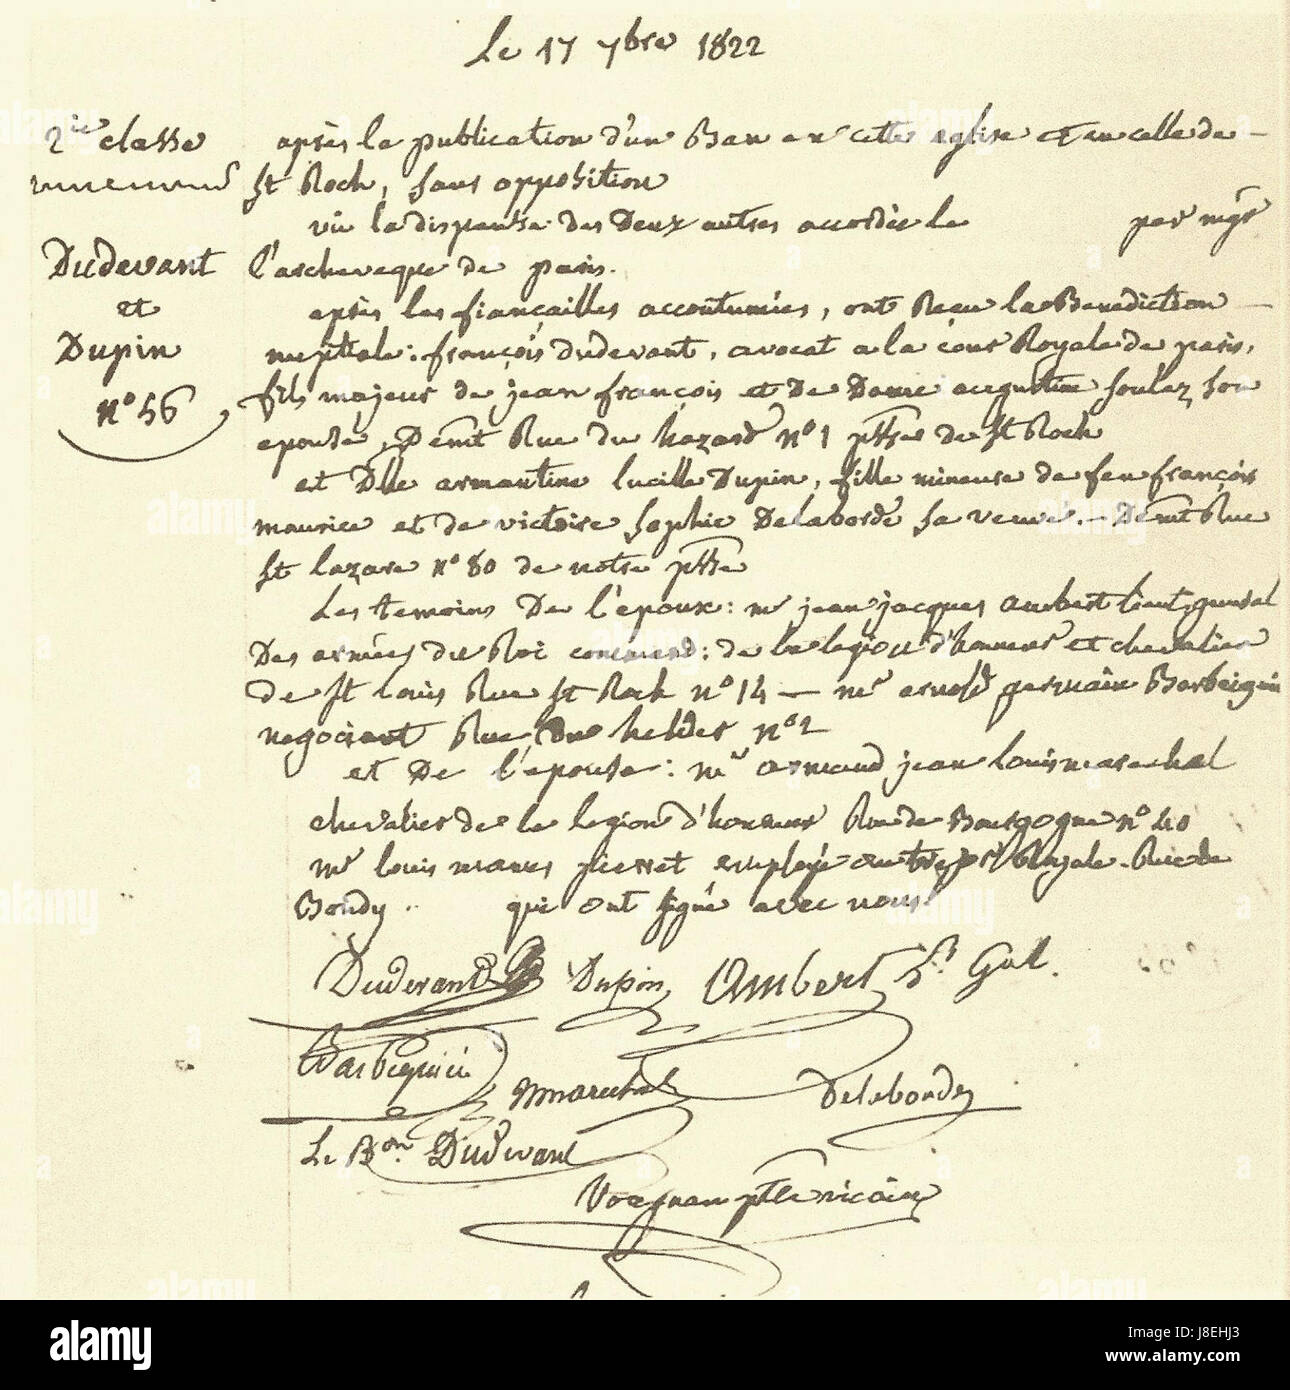 Le 17 7bre 1822
2ie classe
Dudevant
et
Dupin
n° 56
après la publication d'un Ban en cette eglise et en celle de
St Roch, sans opposition
vû la dispense des Deux autres accordée le par mgr
l'archeveque de paris.
après les fiançailles accoutumées, ont Reçu la Benediction
nuptiale: françois dudevant, avocat a la cour Royale de paris,
fils majeur de jean françois et De Dame augustine soulez son
epouse, Demt Rue du hazard n° 1 psse de St Roch
et Dlle armantine lucille Dupin, fille mineure de feu françois
maurice et de victoire sophie Delaborde sa veuve. Demt Rue
St lazare n° 80 de notre psse
Les temoins De l'epoux: mr jean jacques ambert lieut. general
Des armées du Roi command: de la legion d'honneur et chevalier
de St louis Rue St Roch n° 14 — mr germain Barbeguin
negociant Rue du helder n° 2
et De l'epouse: mr armand jean louis marechal
chevalier de la legion d'honneur Rue de Bourgogne n° 40
mr louis pierret employé au Royale. Rue de
Bondy. qui ont signé avec nous
Dudevant Dupin Ambert Lt Gal.
Barbeguiere
Marechal Delaborde
Le Bon Dudevant
vicaire
alamy
Image ID: J8EHJ3
www.alamy.com